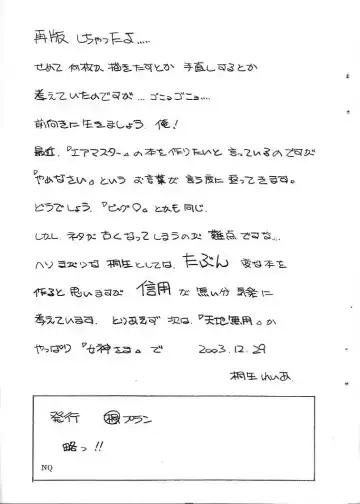 再版 しちゃったよ.....
せめて 何枚か 描きたすとか 手直しするとか
考えていたのですが... ゴニョゴニョ......
前向きに 生きましょう 俺！
最近、『エアマスター』の本を作りたいと 言っているのですが
『やめなさい』という お言葉が 言う度に 返ってきます。
どうでしょう、『ビッグO』とかも同じ.
しかし、ネタが 古くなってしまうのが 難点 ですな...
ヘソまがりな 桐生としては、たぶん 変な本を
作ると 思いますが 信用 が 悪い分 気楽に
考えています. とりあえず 次は、『天地無用』か
やっぱり『女神さま』で 2003.12.29
桐生れいあ
発行 ㊞プラン
略っ!!
NQ